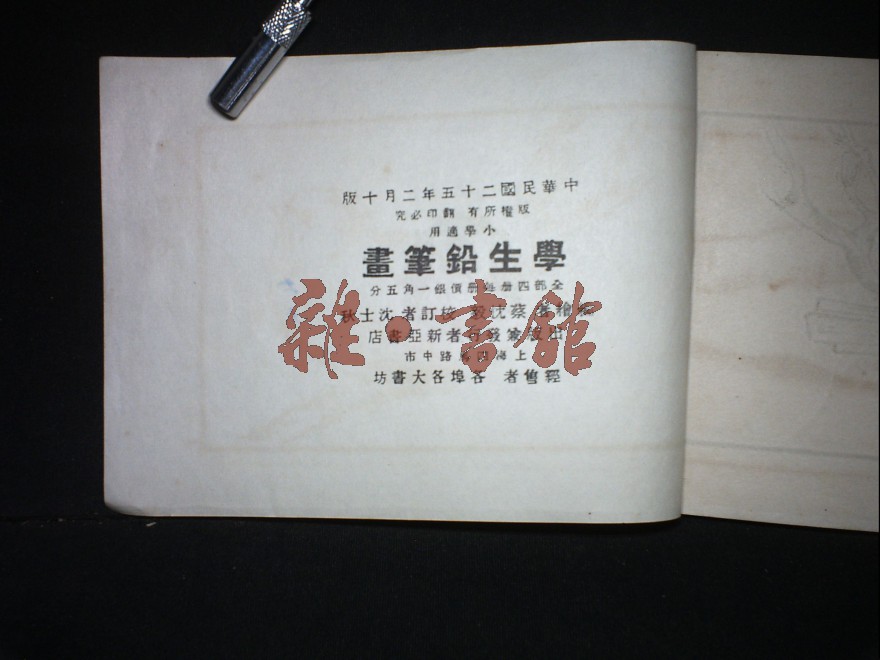 中華民國二十五年二月十版
版權所有 翻印必究
小學適用
學生鉛筆畫
全部四冊每冊價銀一角五分
繪者蔡忱毅 校訂者沈士秋
出版兼發行者新亞書店
上海四馬路中市
經售者 各埠各大書坊
雜·書館